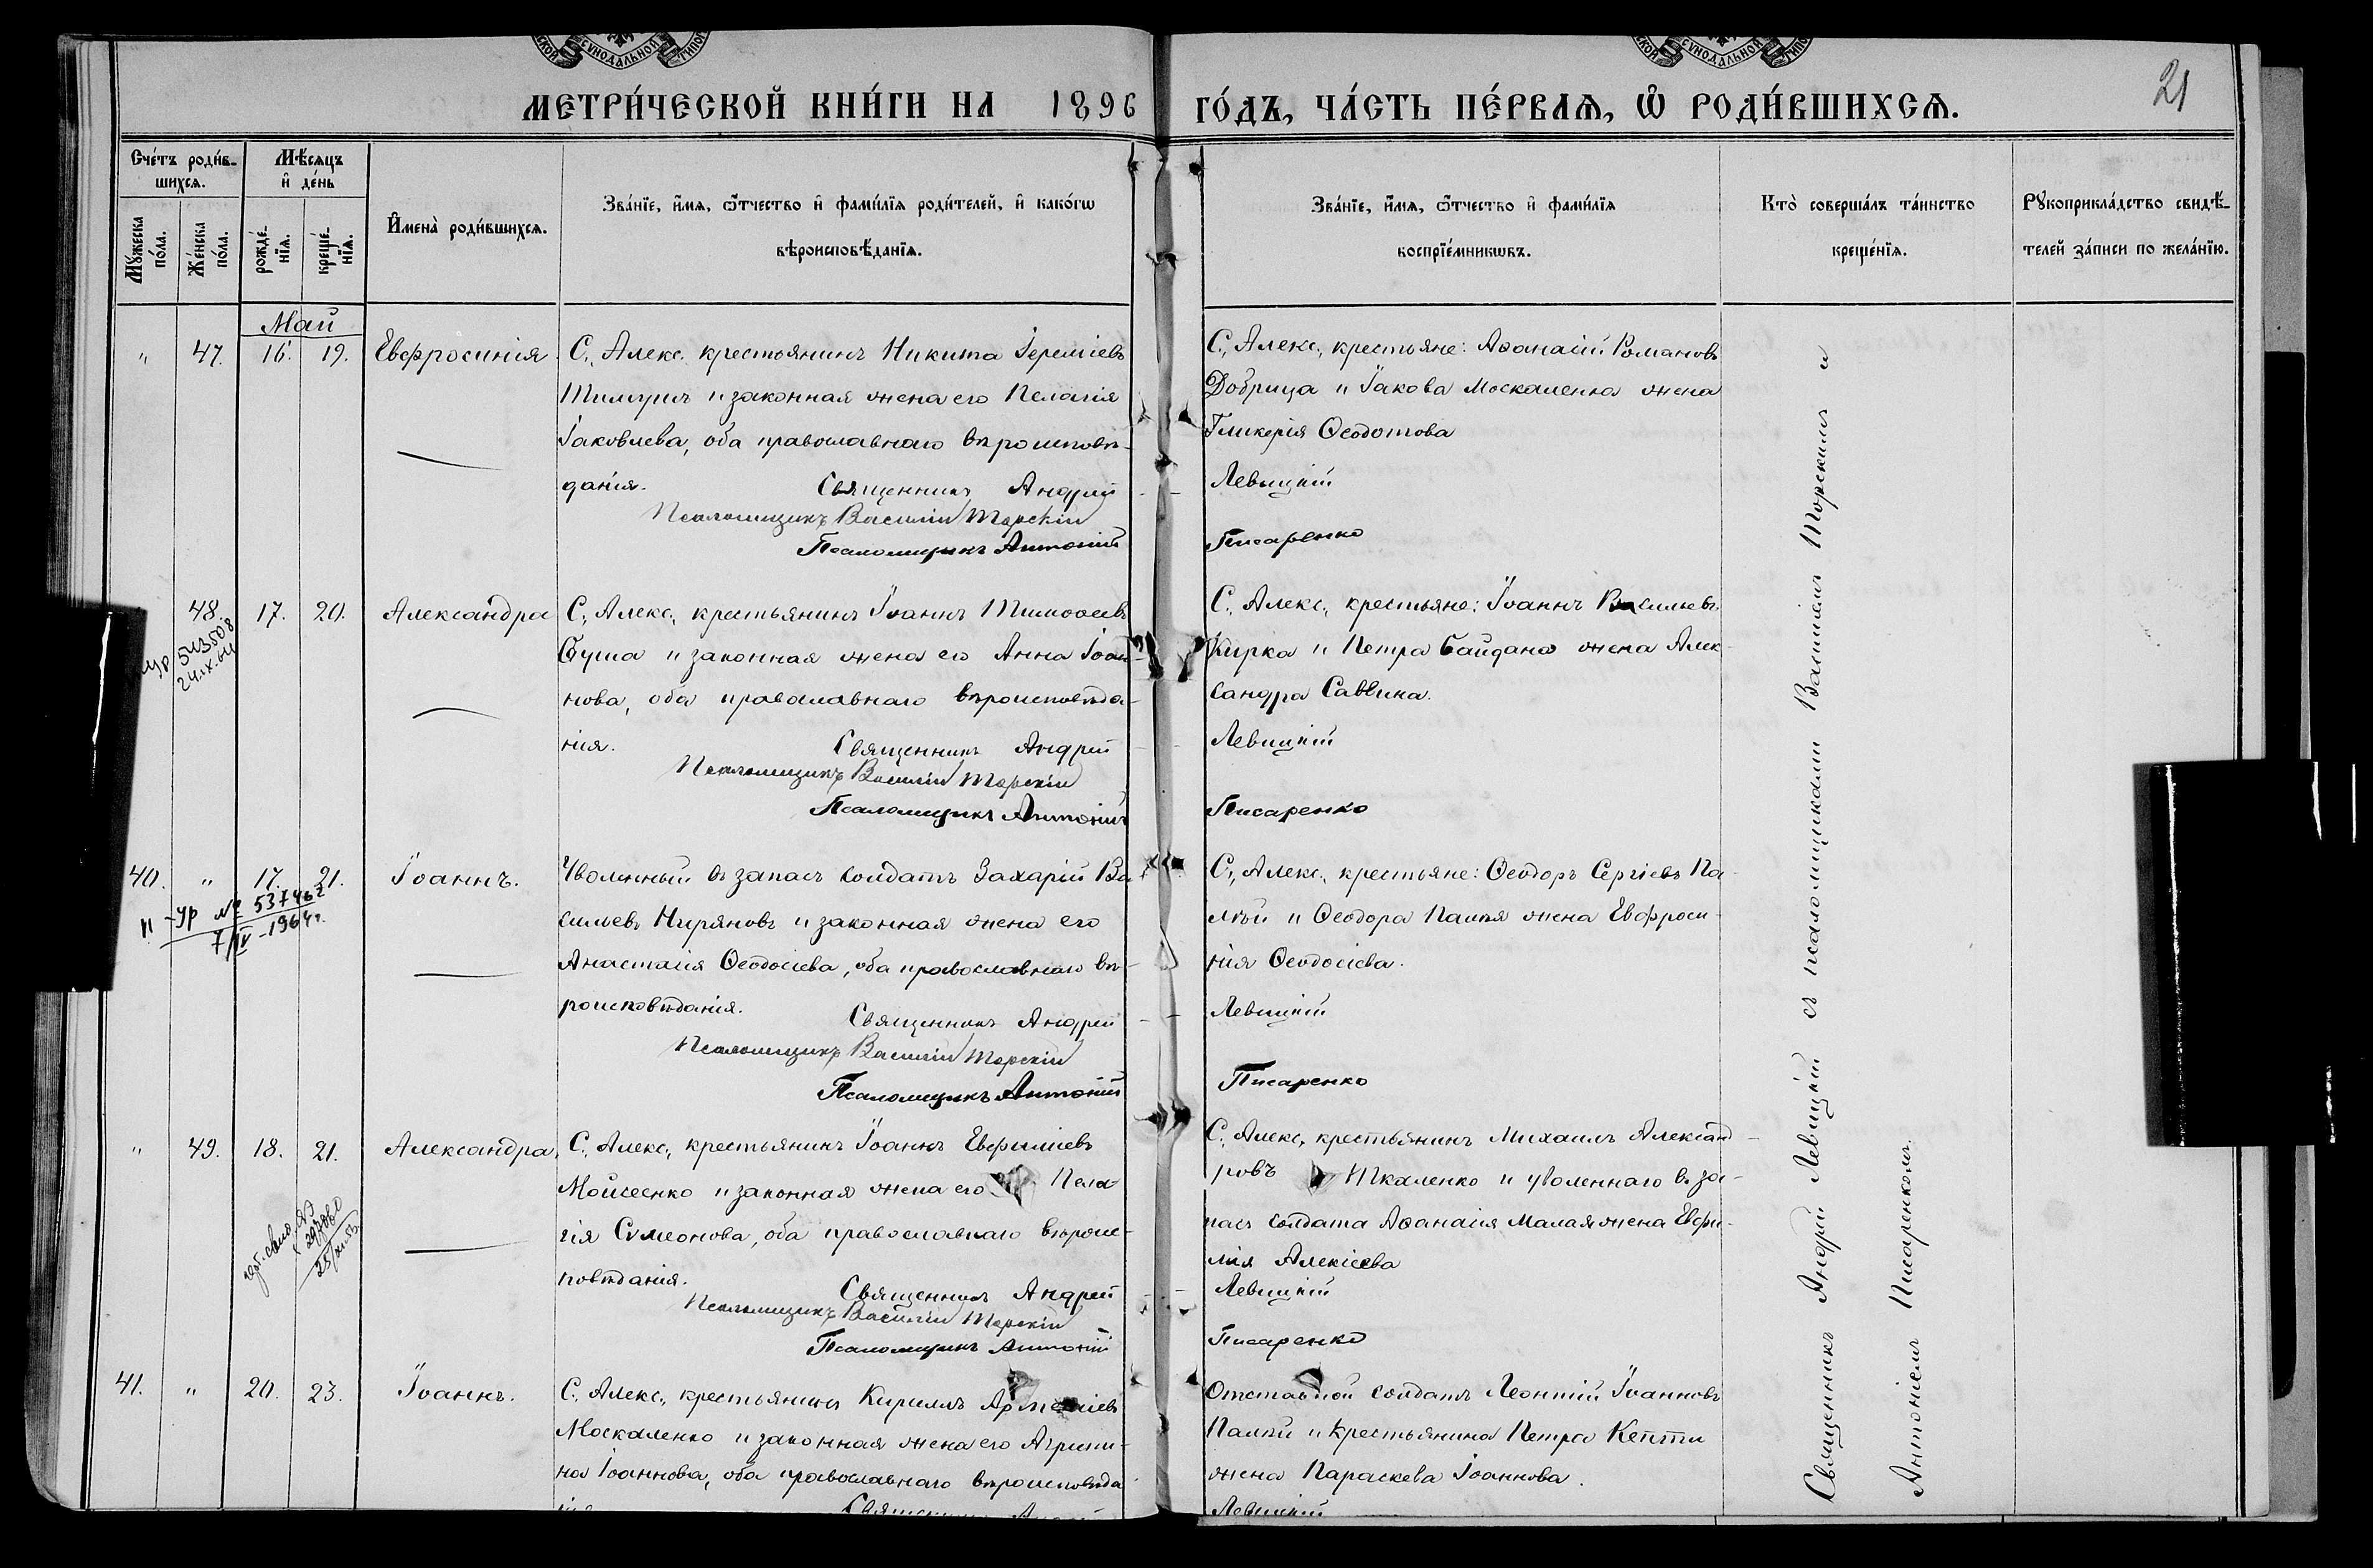 СѴНОДАЛЬНОЙ
СѴНОДАЛЬНОЙ
МЕТРИ́ЧЕСКОЙ КНИ́ГИ НА 1896 ГО́ДЪ, ЧА́СТЬ ПЕ́РВАѦ, Ѡ РОДИ́ВШИХСѦ.
21
Сче́тъ роди́в-
шихсѧ.
Мѣ́сѧцъ
и҆ де́нь
Мꙋ́жеска
по́ла.
Же́нска
по́ла.
рожде́-
нїѧ.
креще́-
нїѧ.
И҆мена̀ роди́вшихсѧ.
Зва́нїе, и҆́мѧ, ѻ҆́тчество и҆ фами́лїѧ роди́телей, и҆ како́гѡ
вѣроисповѣ́данїѧ.
Зва́нїе, и҆́мѧ, ѻ҆́тчество и҆ фами́лїѧ
воспрїе́мникѡвъ.
Кто̀ соверша́лъ та́инство
креще́нїѧ.
Рꙋкоприкла́дство свидѣ́-
телей за́писи по жела́нїю.
Май
" 47. 16. 19. Евфросинія
С. Алекс. крестьянинъ Никита Іереміевъ
законная жена его Пелагія
Іаковлева, оба православнаго вѣроисповѣ-
данія.
Священникъ Андрей
Псаломщикъ Василій Торскій
Псаломщикъ Антоній
С. Алекс. крестьяне: Аѳанасій Романовъ
Добрица и Іакова Москаленка жена
Гликерія Ѳеодотова
Левицкій
Писаренко
48. 17. 20. Александра
543508
24.IX.64
С. Алекс. крестьянинъ Іоаннъ Тимоѳеевъ
и законная жена его Анна Іоан-
нова, оба православнаго вѣроисповѣда-
нія.
Священникъ Андрей
Псаломщикъ Василій Торскій
Псаломщикъ Антоній
С. Алекс. крестьяне: Іоаннъ Васильевъ
Кирка и Петра Байдана жена Алек-
сандра Саввина.
Левицкій
Писаренко
40. " 17. 21. Іоаннъ.
-УР № 537462
7/IV-1964г.
Уволенный въ запасъ солдатъ Захарій Ва-
сильевъ Кирѧновъ и законная жена его
Анастасія Ѳеодосіева, оба православнаго вѣ-
роисповѣданія.
Священникъ Андрей
Псаломщикъ Василій Торскій
Псаломщикъ Антоній
С. Алекс. крестьяне: Ѳеодоръ Сергіевъ Па-
лѣй и Ѳеодора Палѣя жена Евфроси-
нія Ѳеодосіева.
Левицкій
Писаренко
" 49. 18. 21. Александра
С. Алекс. крестьянинъ Іоаннъ Евфиміевъ
Моисеенко и законная жена его Пела-
гія Сѵмеонова, оба православнаго вѣроис-
повѣданія.
Священникъ Андрей
Псаломщикъ Василій Торскій
Псаломщикъ Антоній
С. Алекс. крестьянинъ Михаилъ Александ-
ровъ Ткаленко и уволеннаго въ за-
пасъ солдата Аѳанасія Малая жена Евфи-
мія Алексіева
Левицкій
Писаренко
41. " 20. 23. Іоаннъ.
С. Алекс. крестьянинъ Кириллъ
Москаленко и законная жена его Агрипи-
на Іоаннова, оба православнаго вѣроисповѣда
Отставной солдатъ Леонтій Іоанновъ
Палѣй и крестьянина Петра
жена Параскева Іоаннова.
Левицкій
Священникъ Андрей Левицкій съ псаломщиками Василіемъ Торскимъ и
Антоніемъ Писаренкомъ.